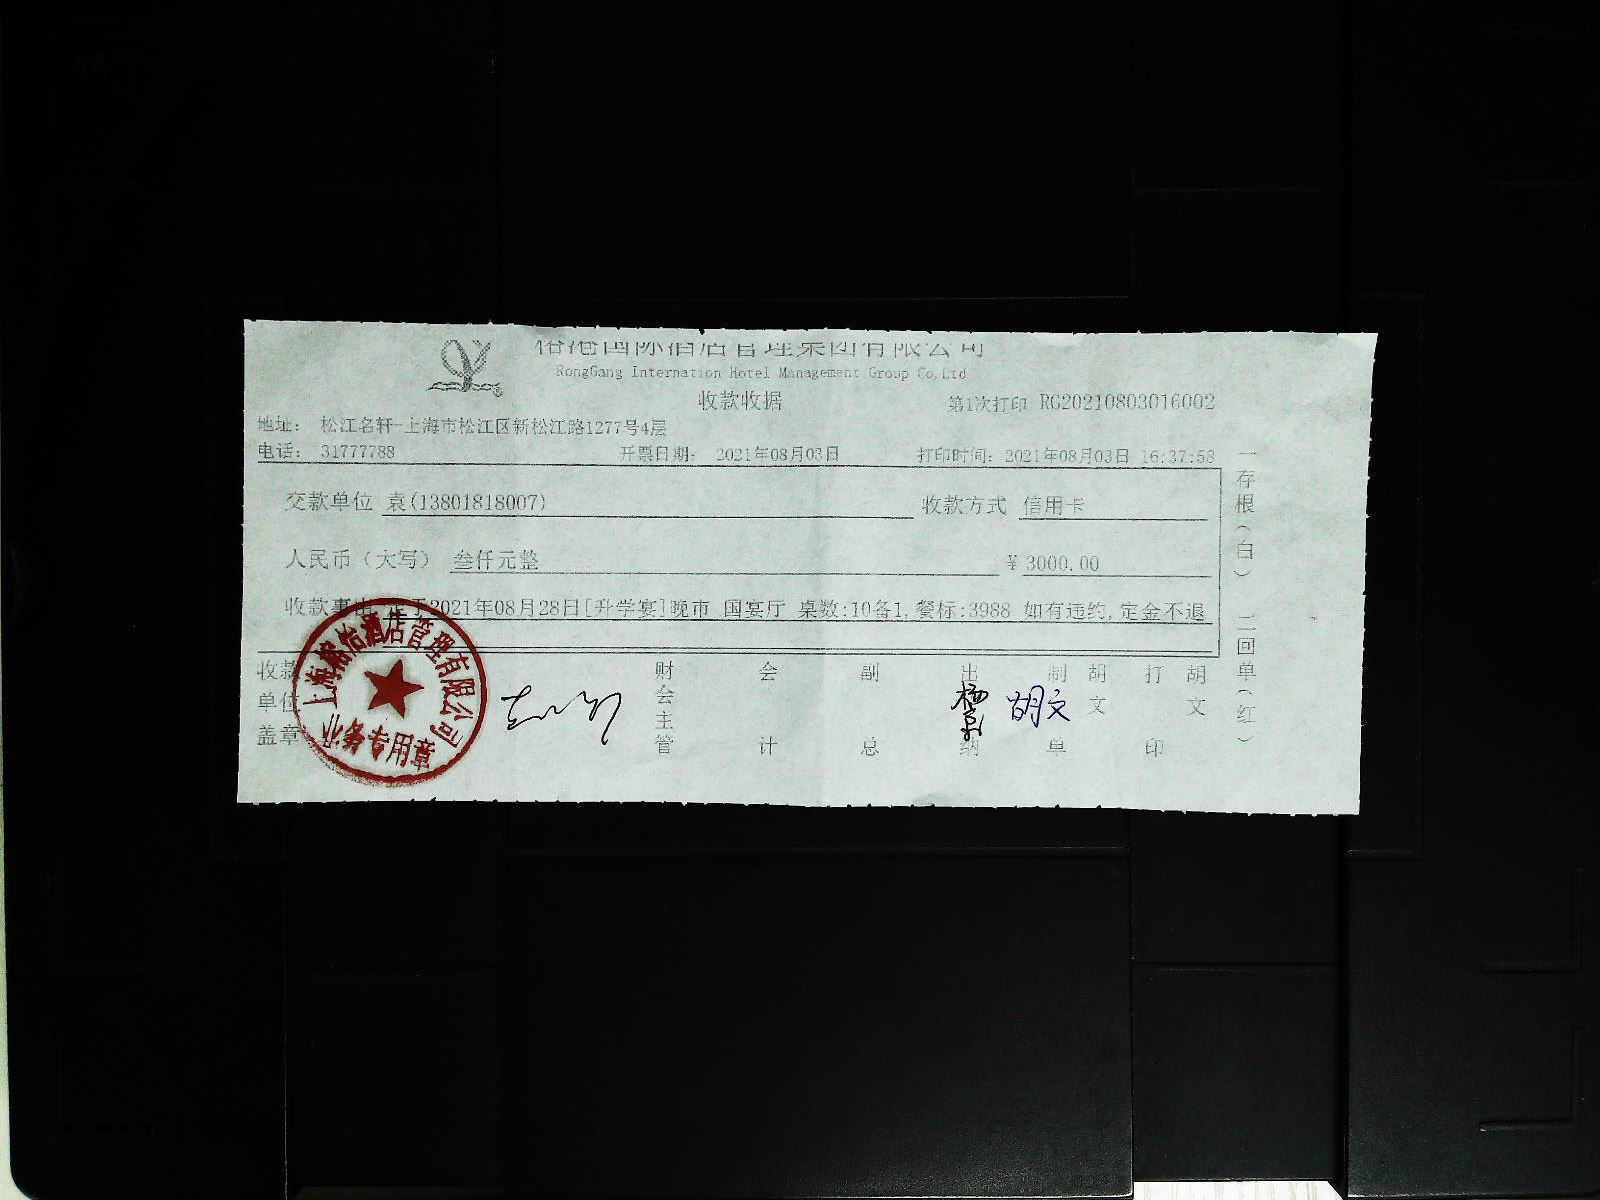 榕港国际酒店管理集团有限公司
RongGang Internation Hotel Management Group Co,Ltd
收款收据
第1次打印 RG20210803016002
地址： 松江名轩-上海市松江区新松江路1277号4层
电话： 31777788 开票日期： 2021年08月03日 打印时间：2021年08月03日 16:37:58
交款单位 袁(13801818007) 收款方式 信用卡
人民币（大写） 叁仟元整 ￥3000.00
收款事由 定于2021年08月28日[升学宴]晚市 国宴厅 桌数:10备1,餐标:3988 如有违约,定金不退
收款单位盖章
财会主管
会计
副总
出纳
制单 胡文
打印 胡文
胡文
一存根(白) 二回单(红)
上海榕怡酒店管理有限公司
业务专用章